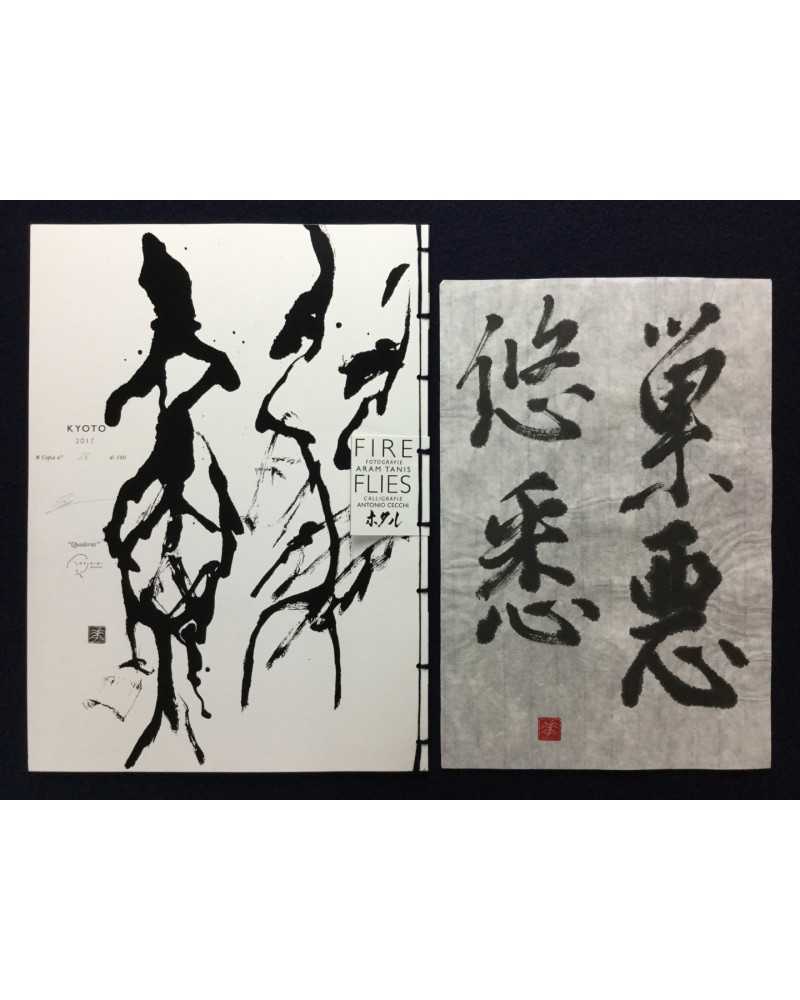 KYOTO
2017
N Copia n° 28 di 100
"Quaderni"
FIRE
FOTOGRAFIE
ARAM TANIS
FLIES
CALLIGRAFIE
ANTONIO CECCHI
ホタル
巣悪
悠悉